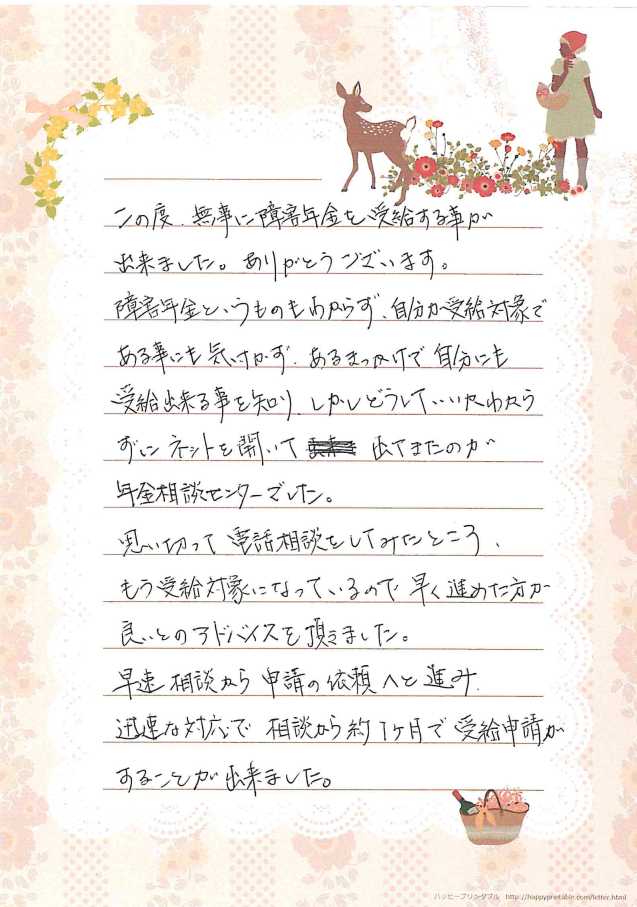 この度、無事に障害年金を受給する事が
出来ました。ありがとうございます。
障害年金というものもわからず、自分が受給対象で
ある事にも気付かず、あるきっかけで自分にも
受給出来る事を知り、しかしどうしていいかわから
ずにネットを開いて 出てきたのが
年金相談センターでした。
思い切って電話相談をしてみたところ、
もう受給対象になっているので早く進めた方が
良いとのアドバイスを頂きました。
早速相談から申請の依頼へと進み、
迅速な対応で相談から約1ヶ月で受給申請が
することが出来ました。
ハッピープリンタブル http://happyprintable.com/letter.html